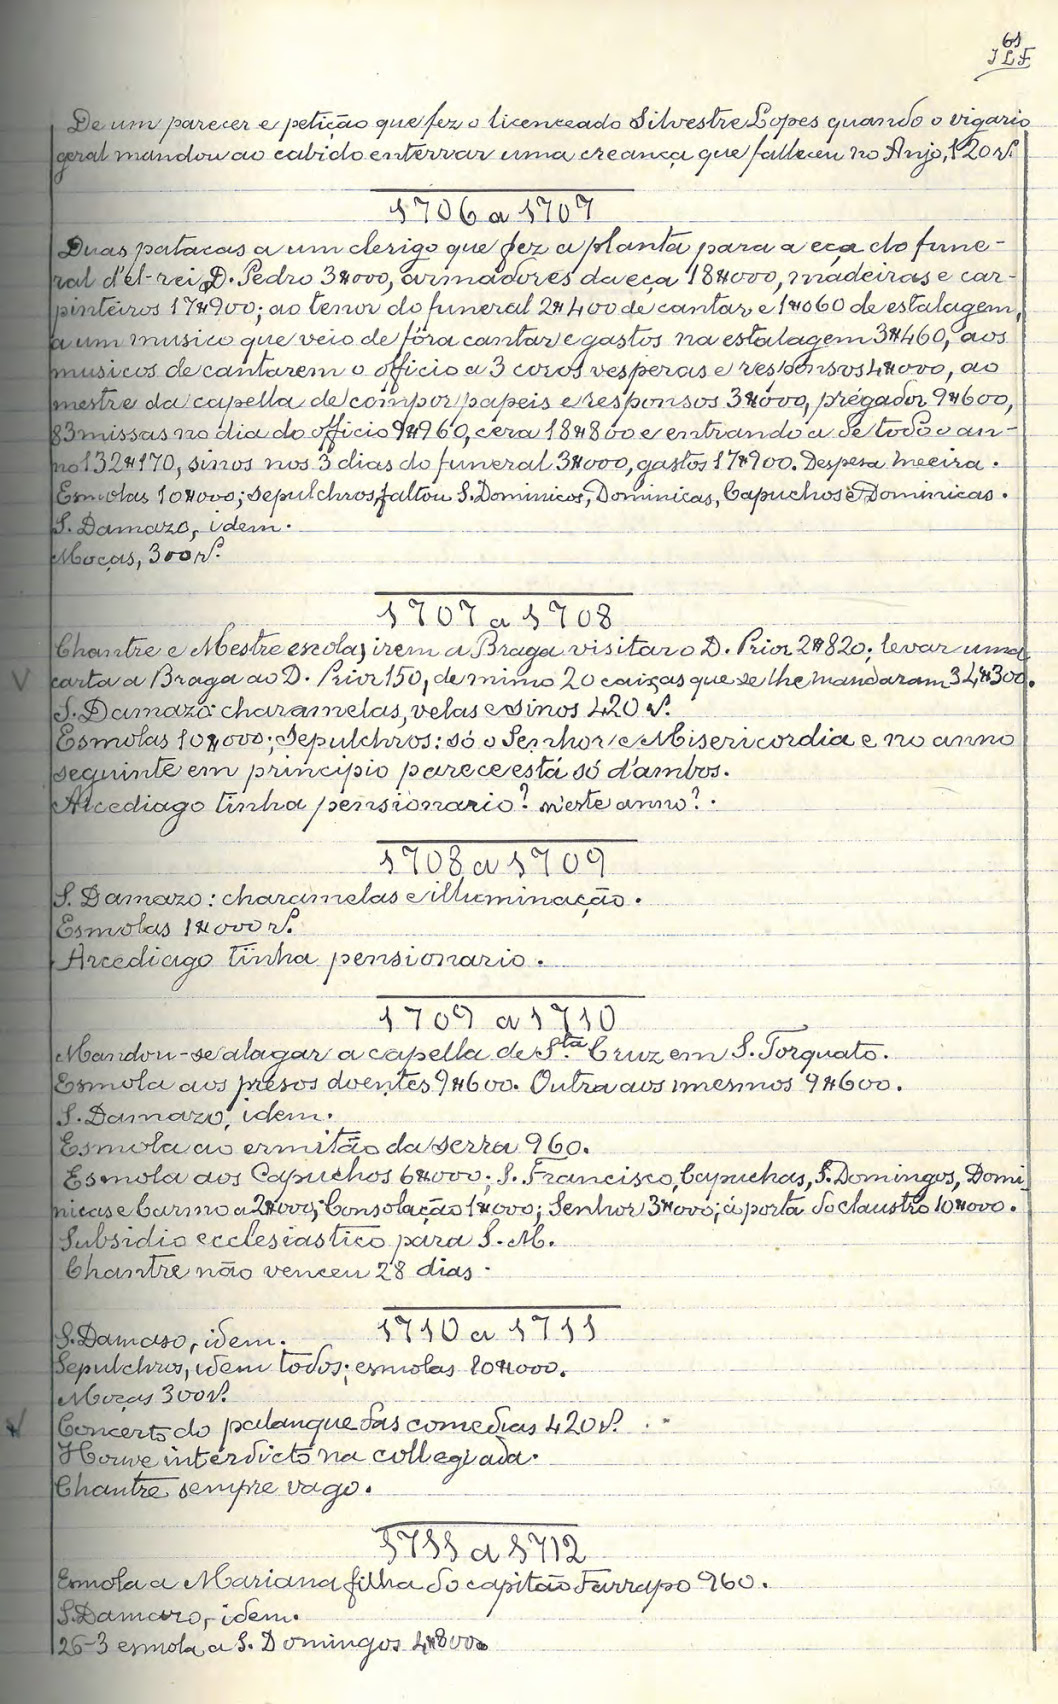 61
J L F
De um parecer e petição que fez o licenceado Silvestre Lopes quando o vigario
geral mandou ao cabido enterrar uma creança que falleceu no Anjo, 120 rs.
1706 a 1707
Duas patacas a um clerigo que fez a planta para a eça do fune-
ral d'el-rei D. Pedro 3$000, armadores da eça 18$000, madeiras e car-
pinteiros 17$900; ao tenor do funeral 2$400 de cantar e 1$060 de estalagem,
a um musico que veio de fóra cantar e gastos na estalagem 3$460, aos
musicos de cantarem o officio a 3 coros vesperas e responsos 4$000, ao
mestre da capella de compor papeis e responsos 3$000, prégador 9$600,
83 missas no dia do officio 9$960, cera 18$800 e entrando a Sé todo o an-
no 132$170, sinos nos 3 dias do funeral 3$000, gastos 17$900. Despesa meeira.
Esmolas 10$000; sepulchros, faltou S. Dominicos, Dominicas, Capuchos e Dominicas.
S. Damazo, idem.
Moças, 300 rs.
1707 a 1708
Chantre e Mestre escola, irem a Braga visitar o D. Prior 2$820; levar uma
V carta a Braga ao D. Prior 150, de mimo 20 caixas que se lhe mandaram 34$300.
S. Damazo: charamelas, velas e sinos 420 rs.
Esmolas 10$000; Sepulchros: só o Senhor e Misericordia e no anno
seguinte em principio parece está só d'ambos.
Arcediago tinha pensionario? n'este anno?.
1708 a 1709
S. Damazo: charamelas e illuminação.
Esmolas 1$000 rs.
Arcediago tinha pensionario.
1709 a 1710
Mandou-se alagar a capella de Sta. Cruz em S. Torquato.
Esmola aos presos doentes 9$600. Outra aos mesmos 9$600.
S. Damazo, idem.
Esmola ao ermitão da serra 960.
Esmola aos Capuchos 6$000; S. Francisco, Capuchas, S. Domingos, Domi-
nicas e Carmo a 2$000; Consolação 1$000; Senhor 3$000; á porta do claustro 10$000.
Subsidio ecclesiastico para S. M.
Chantre não venceu 28 dias.
1710 a 1711
S. Damaso, idem.
Sepulchros, idem todos; esmolas 10$000.
Moças 300 rs.
V Concerto do palanque das comedias 420 rs.
Houve interdicto na collegiada.
Chantre sempre vago.
1711 a 1712
Esmola a Marianna filha do capitão Farrapo 960.
S. Damazo, idem.
26-3 esmola a S. Domingos 4$800.